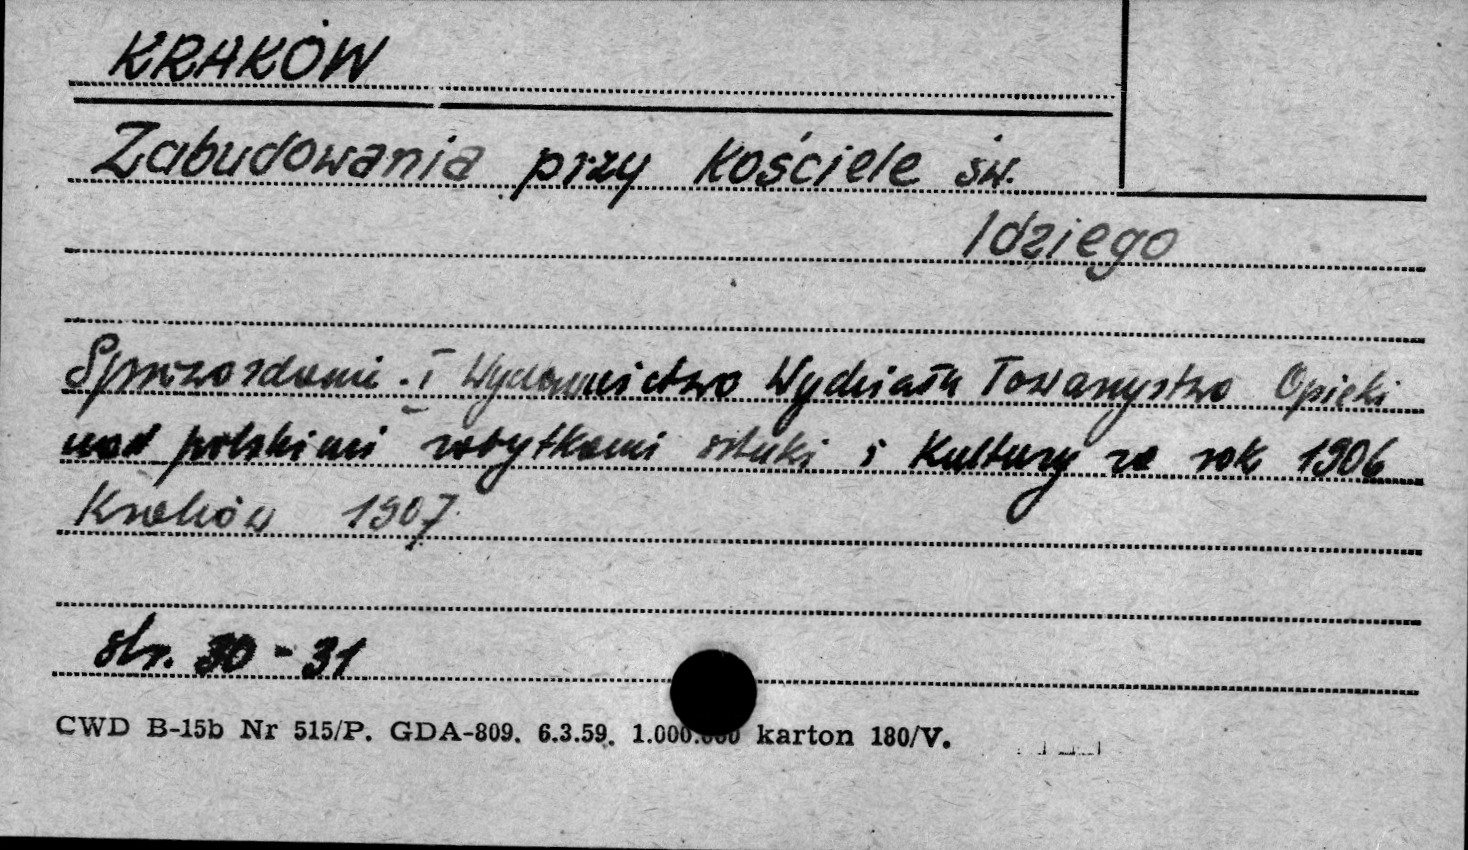 KRAKÓW
Zabudowania przy Kościele św.
Idziego
Sprawozdanie i Wydawnictwo Wydziału Towarzystwa Opieki
nad polskimi zabytkami sztuki i Kultury za rok 1906
Kraków 1907
str. 30-31
CWD B-15b Nr 515/P. GDA-809. 6.3.59. 1.000.000 karton 180/V.